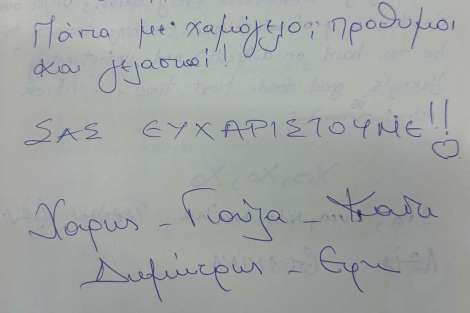 Πάντα με χαμόγελο, πρόθυμοι
και γελαστοί!
ΣΑΣ ΕΥΧΑΡΙΣΤΟΥΜΕ!!
Χαρης - Γιούλα -
Δημήτρης - Εφη